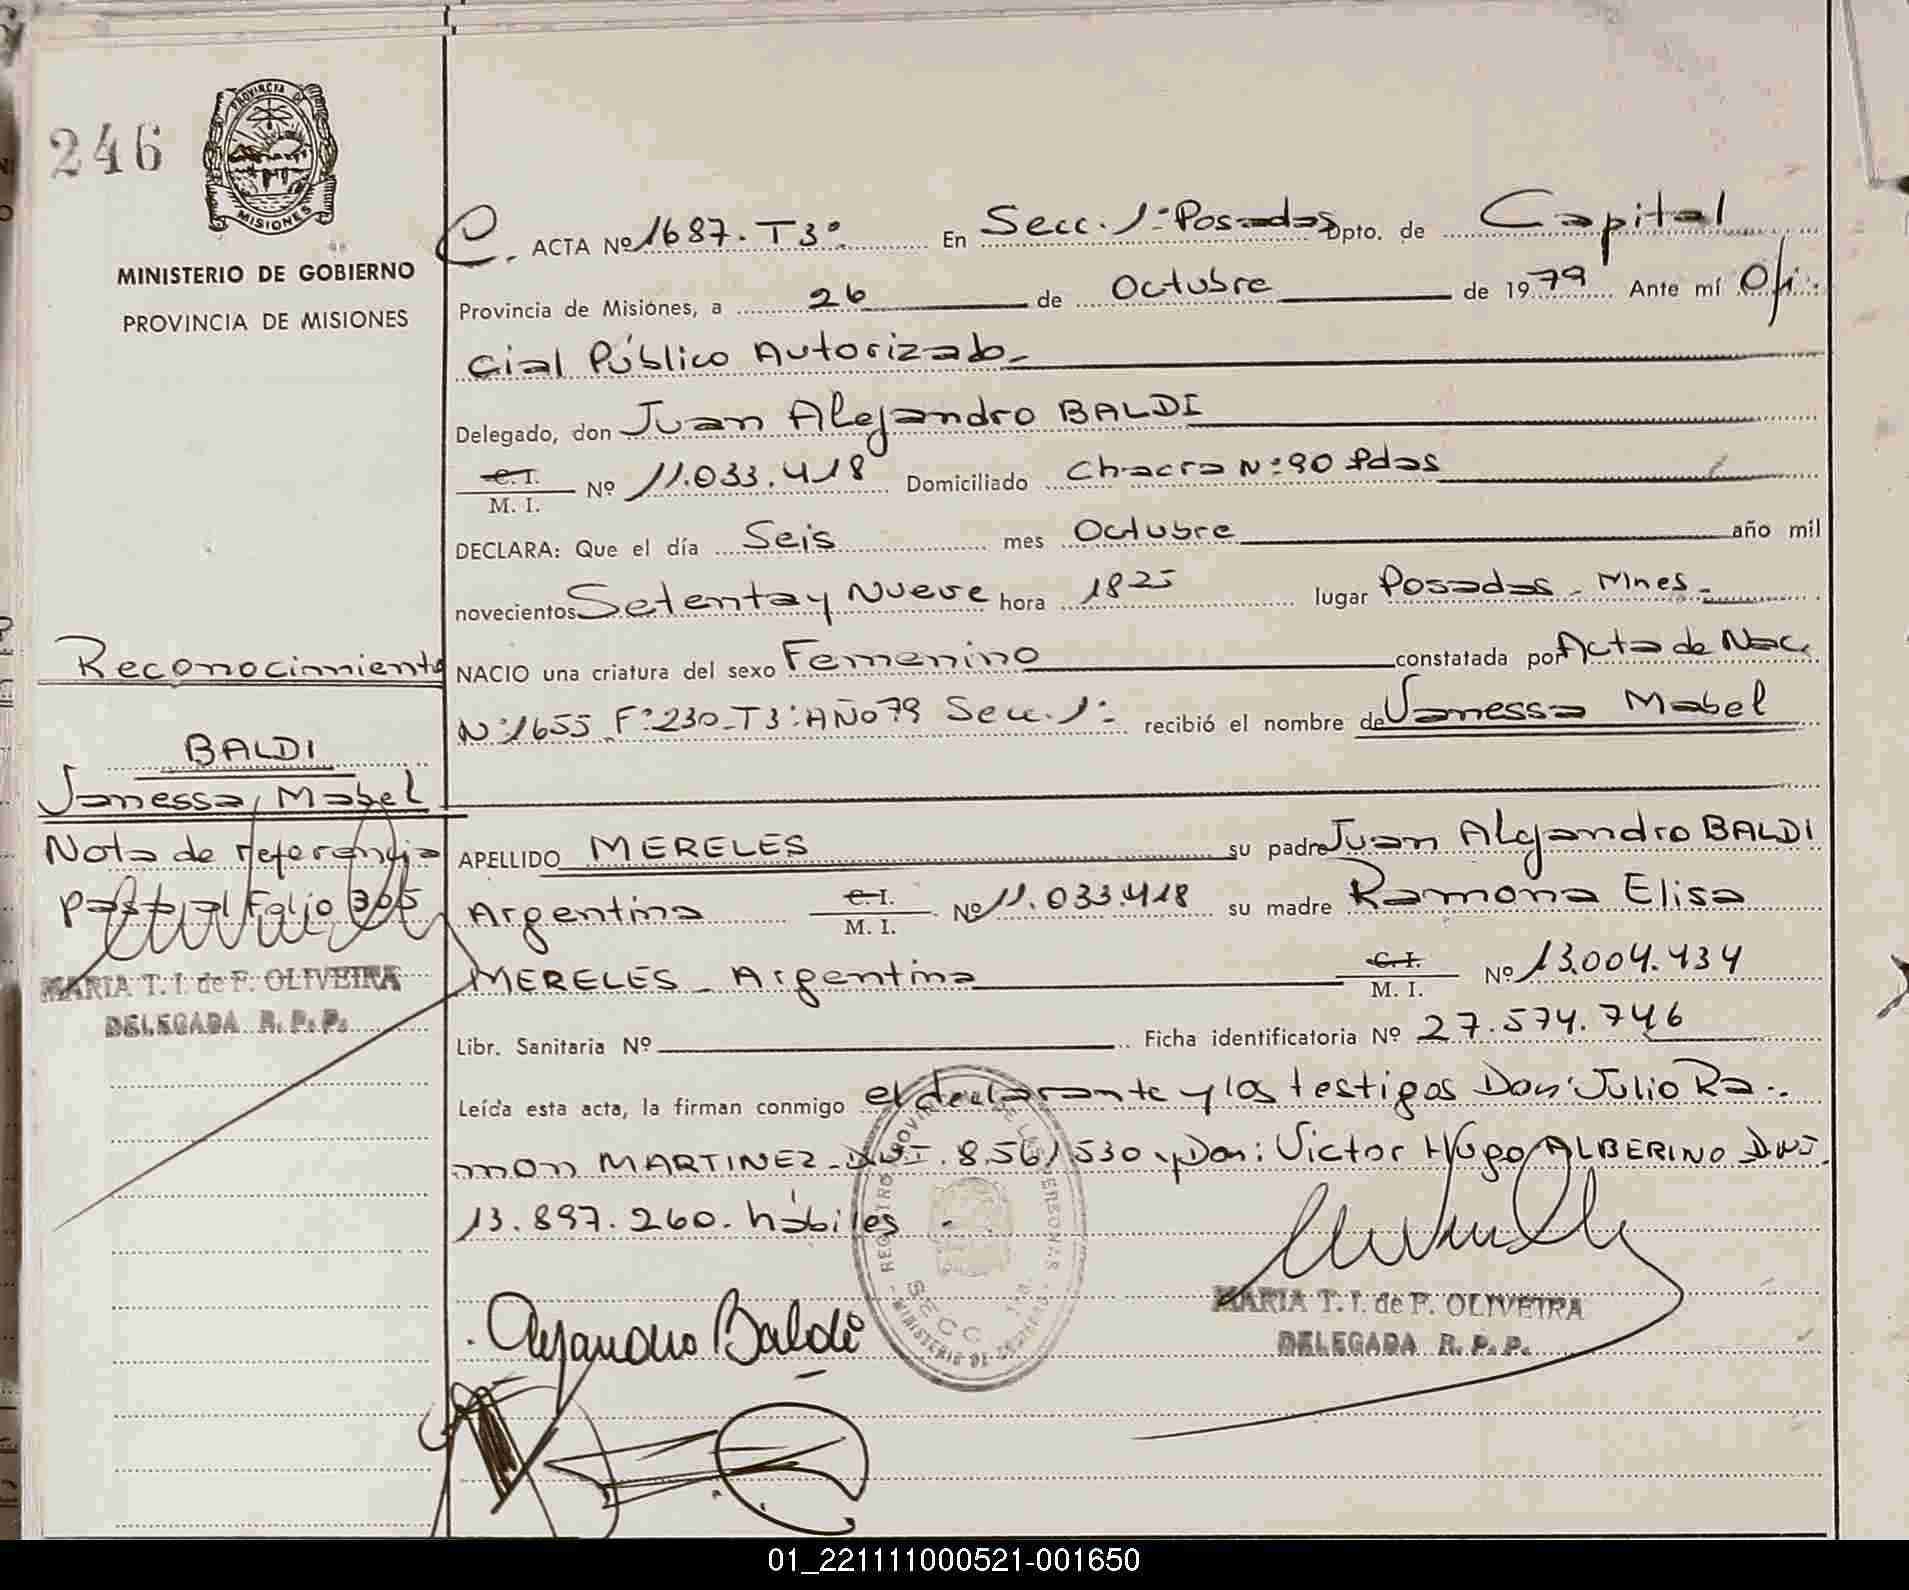 246
PROVINCIA DE
MISIONES
MINISTERIO DE GOBIERNO
PROVINCIA DE MISIONES
Reconocimiento
BALDI
Vanessa Mabel
Nota de referencia
Folio 305
MARIA T. I. de F. OLIVEIRA
DELEGADA R. P. P.
C. ACTA Nº 1687. T3º. En Secc. 1ª Posadas Dpto. de Capital
Provincia de Misiones, a 26 de Octubre de 1979 Ante mí Ofi-
cial Público Autorizado
Delegado, don Juan Alejandro BALDI
C. I.
M. I. Nº 11.033.418 Domiciliado Chacra Nº 90 Pdas
DECLARA: Que el día Seis mes Octubre año mil
novecientos Setenta y Nueve hora 18 25 lugar Posadas - Mnes.
NACIO una criatura del sexo Femenino constatada por Acta de Nac.
Nº 1655 Fº 230 - T3º AÑO 79 Secc. 1ª recibió el nombre de Vanessa Mabel
APELLIDO MERELES su padre Juan Alejandro BALDI
Argentina C. I.
M. I. Nº 11.033.418 su madre Ramona Elisa
MERELES - Argentina C. I.
M. I. Nº 13.004.434
Libr. Sanitaria Nº Ficha identificatoria Nº 27.574.746
Leída esta acta, la firman conmigo el declarante y los testigos Don: Julio Ra-
mon MARTINEZ - DNI. 8.561.530 y Don: Victor Hugo ALBERINO DNI.
13.897.260. hábiles -
SECC 1ra.
Alejandro Baldi
MARIA T. I. de F. OLIVEIRA
DELEGADA R. P. P.
01_221111000521-001650